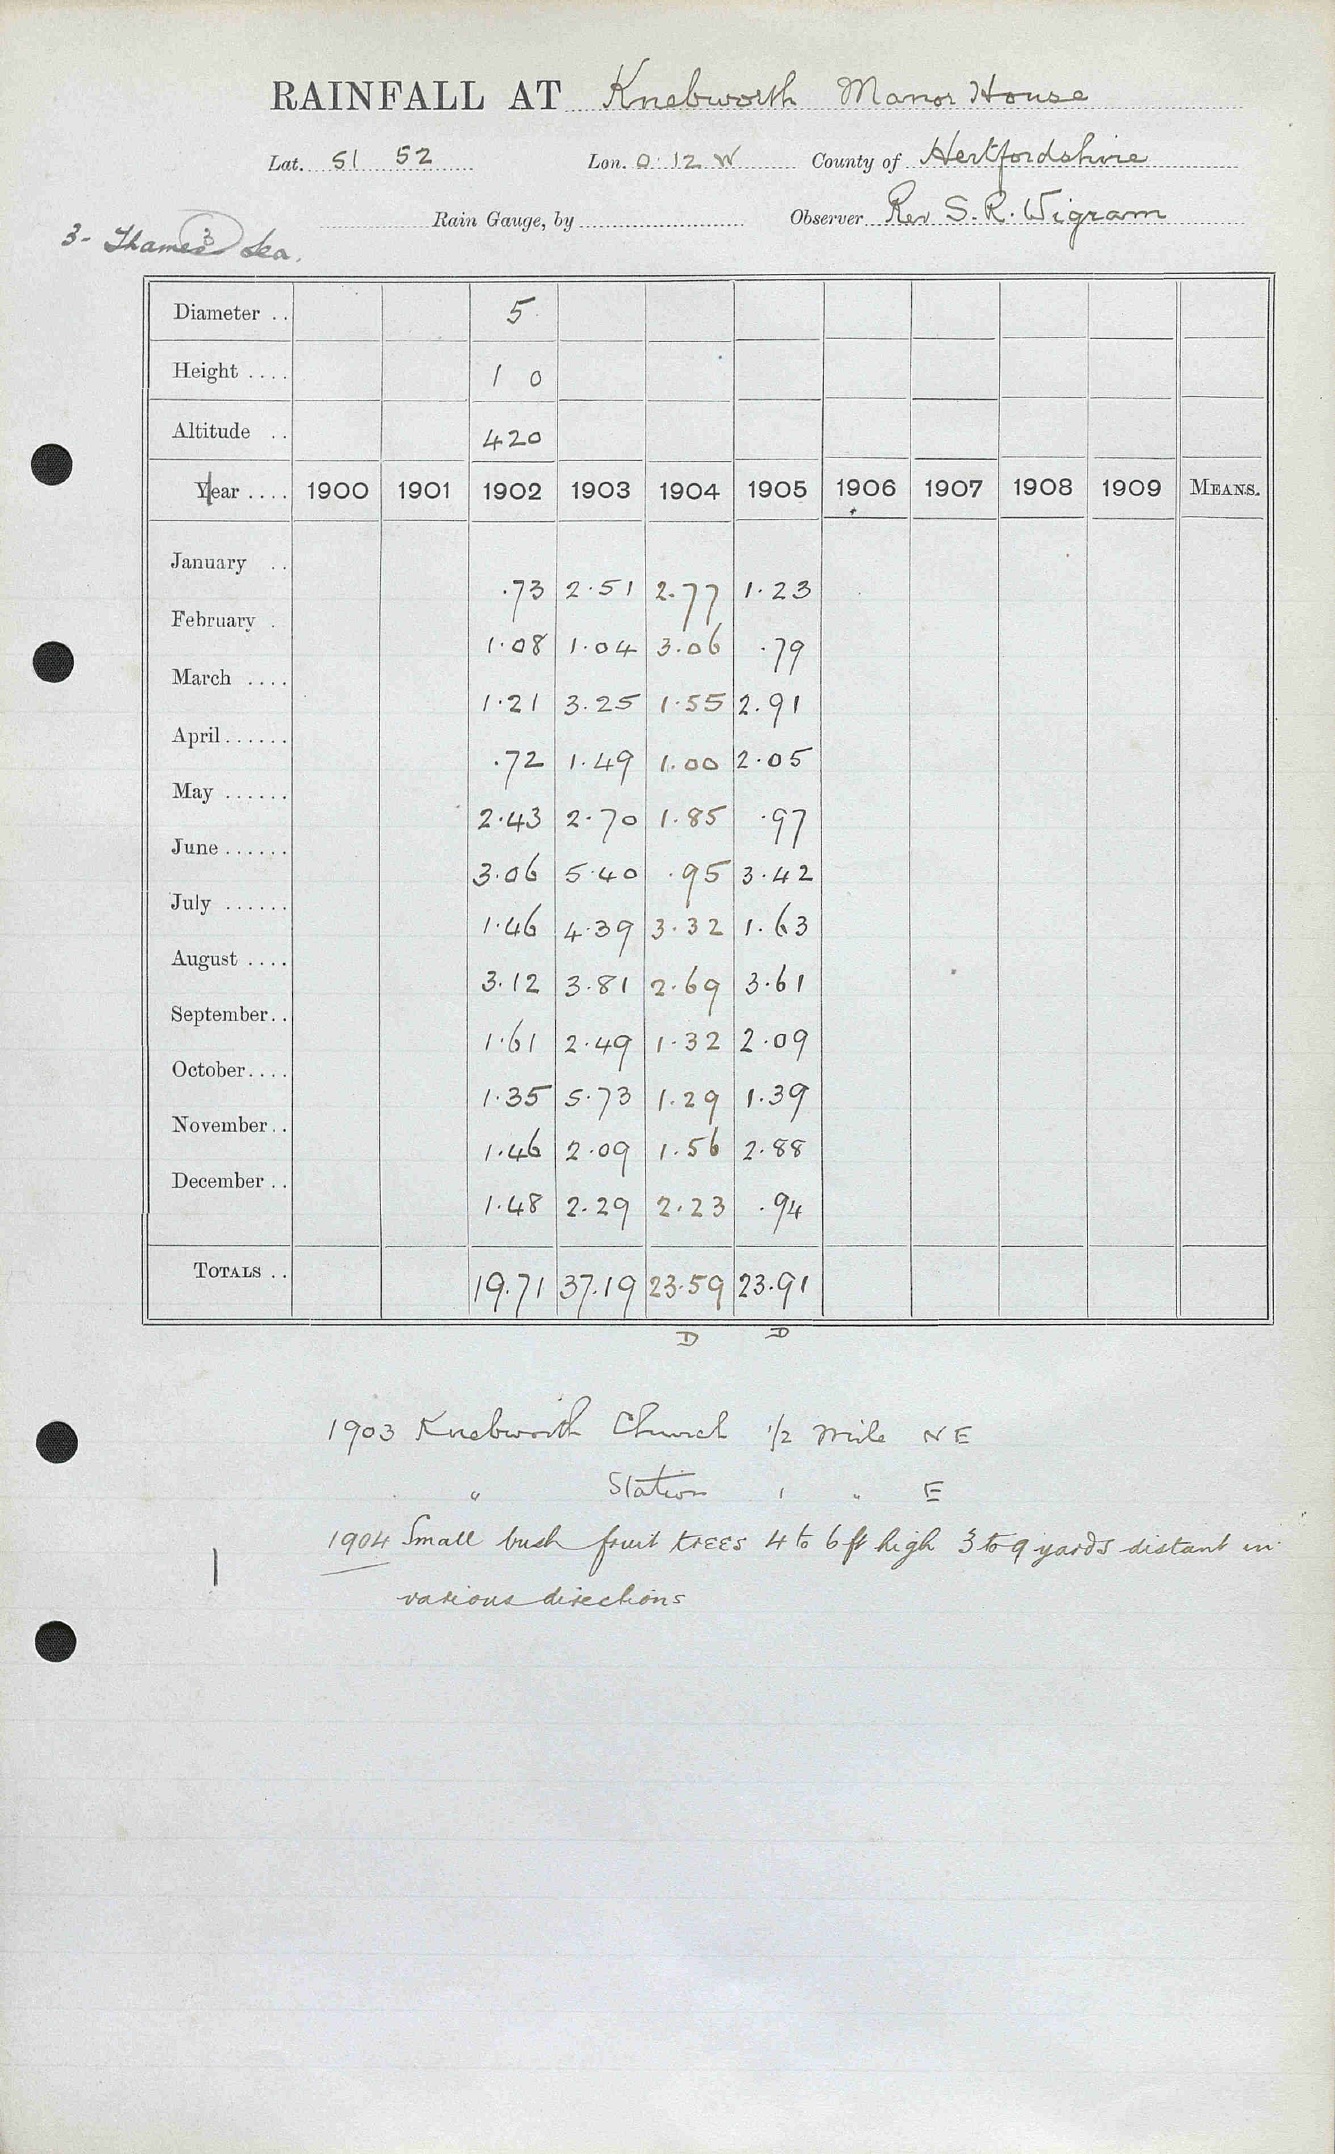 RAINFALL AT Knebworth Manor House
Lat. 51 52 Lon. 0.12 W County of Hertfordshire
Rain Gauge, by Observer Rev S. R. Wigram
3- Thames 3 Lea.
Diameter .. 5
Height .... 1 0
Altitude .. 420
Year .... 1900 1901 1902 1903 1904 1905 1906 1907 1908 1909 MEANS.
January .. .73 2.51 2.77 1.23
February . 1.08 1.04 3.06 .79
March .... 1.21 3.25 1.55 2.91
April...... .72 1.49 1.00 2.05
May ...... 2.43 2.70 1.85 .97
June...... 3.06 5.40 .95 3.42
July ...... 1.46 4.39 3.32 1.63
August .... 3.12 3.81 2.69 3.61
September.. 1.61 2.49 1.32 2.09
October.... 1.35 5.73 1.29 1.39
November.. 1.46 2.09 1.56 2.88
December.. 1.48 2.29 2.23 .94
TOTALS .. 19.71 37.19 23.59 23.91
D D
1903 Knebworth Church 1/2 mile NE
" Station 1 " E
1904 Small bush fruit trees 4 to 6 ft high 3 to 9 yards distant in
various directions